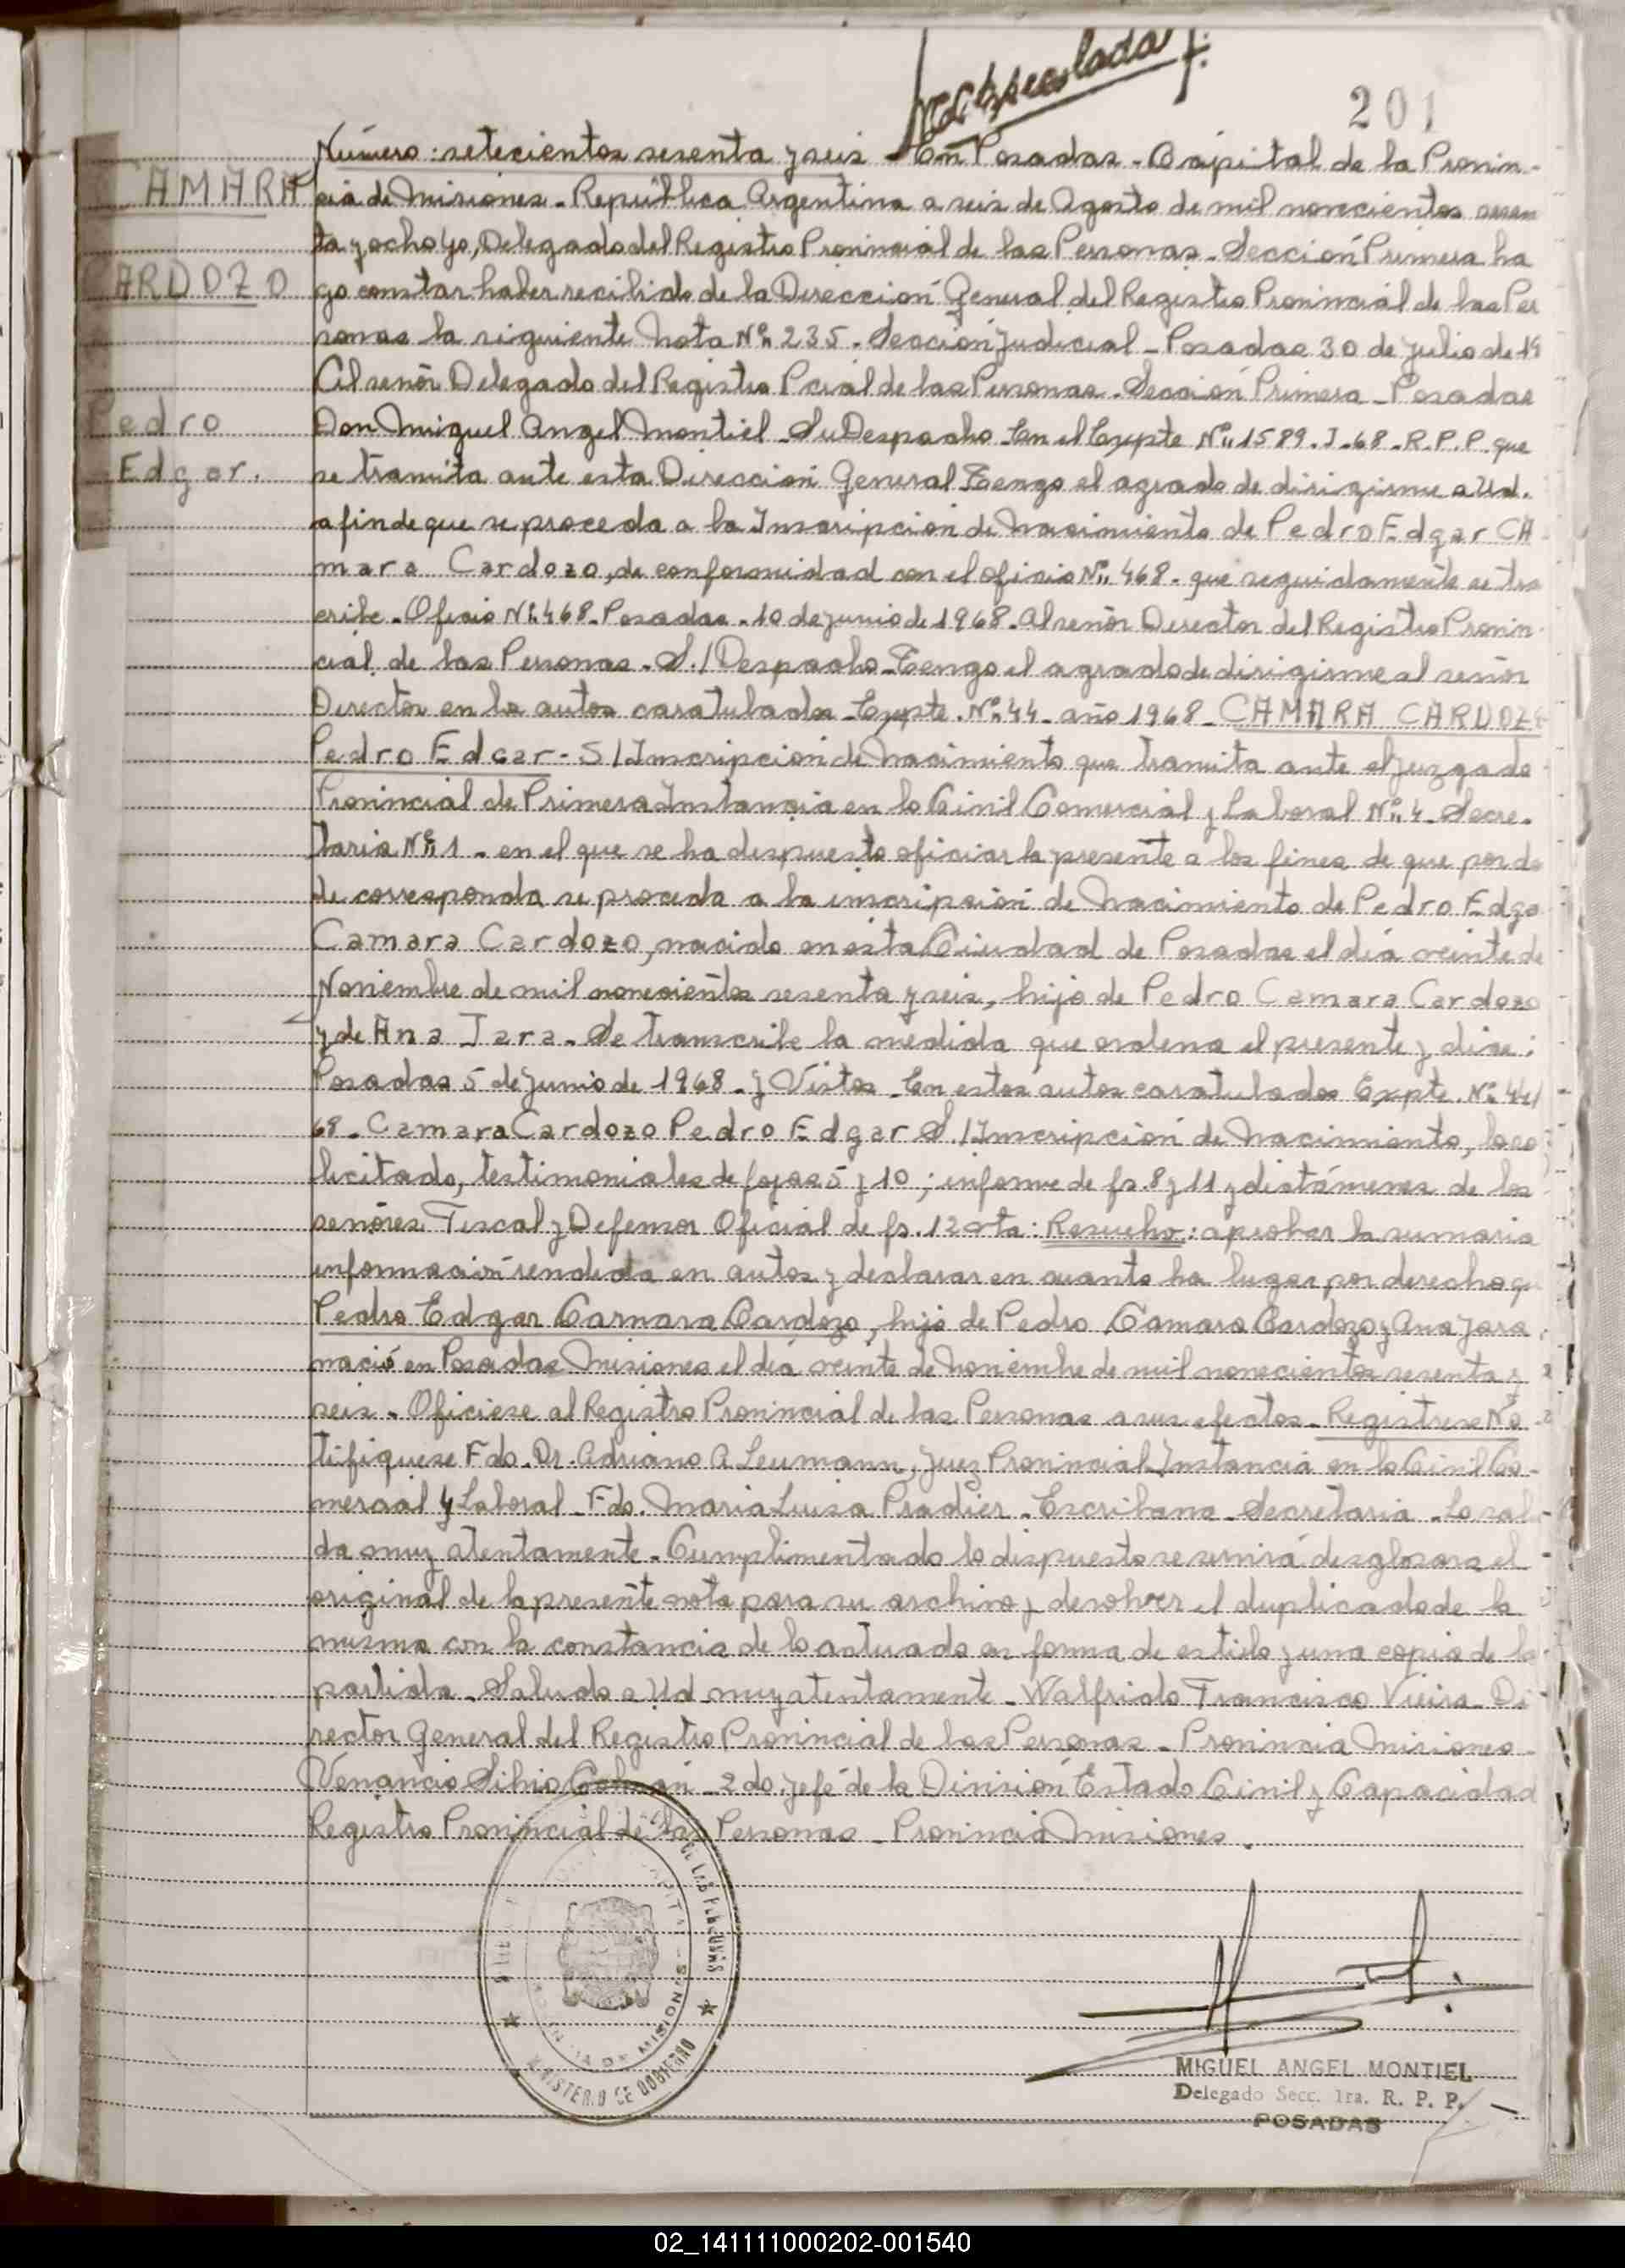 201
Número: setecientos sesenta y seis - En Posadas - Capital de la Provin-
CAMARA cia de Misiones - República Argentina a seis de Agosto de mil novecientos sesen
ta y ocho Yo, Delegado del Registro Provincial de las Personas - Sección Primera ha
CARDOZO go constar haber recibido de la Dirección General del Registro Provincial de las Per
sonas la siguiente Nota Nº 235 - Sección Judicial - Posadas 30 de Julio de 19
Al señor Delegado del Registro Pcial de las Personas - Sección Primera - Posadas
Pedro Don Miguel Angel Montiel - Su Despacho - En el Expte Nº 1589 - J - 68 - R.P.P. que
Edgar. se tramita ante esta Dirección General Tengo el agrado de dirigirme a Ud.
a fin de que se proceda a la Inscripción de Nacimiento de Pedro Edgar CA
mara Cardozo, de conformidad con el oficio Nº 468 - que seguidamente se trs
cribe - Oficio Nº 468 - Posadas - 10 de junio de 1968 - Al señor Director del Registro Provin-
cial de las Personas - S./Despacho - Tengo el agrado de dirigirme al señor
Director en los autos caratulados - Expte. Nº 44 - año 1968 - CAMARA CARDOZO
Pedro Edgar - S/Inscripción de Nacimiento que tramita ante el Juzgado
Provincial de Primera Instancia en lo Civil Comercial y Laboral Nº 4 - Secre-
taria Nº 1 - en el que se ha dispuesto oficiar la presente a los fines de que por do
de corresponda se proceda a la inscripción de Nacimiento de Pedro Edga
Camara Cardozo, nacido en esta Ciudad de Posadas el día veinte de
Noviembre de mil novecientos sesenta y seis, hijo de Pedro Camara Cardozo
y de Ana Jara - Se transcribe la medida que ordena el presente y dice:
Posadas 5 de Junio de 1968 - Y Vistos - En estos autos caratulados Expte. Nº 44/
68 - Camara Cardozo Pedro Edgar S./Inscripción de Nacimiento, lo so
licitado, testimoniales de fojas 5 y 10; informe de fs. 8 y 11 y dictámenes de los
señores Fiscal y Defensor Oficial de fs. 12 vta: Resuelvo: aprobar la sumaria
información rendida en autos y declarar en cuanto ha lugar por derecho qu
Pedro Edgar Camara Cardozo, hijo de Pedro Camara Cardozo y Ana Jara,
nació en Posadas Misiones el día veinte de Noviembre de mil novecientos sesenta y
seis - Oficiese al Registro Provincial de las Personas a sus efectos - Registrese No
tifiquese Fdo. Dr. Adriano A Leumann, Juez Provincial Instancia en lo Civil Co-
mercial y Laboral - Fdo. Maria Luisa Pradier - Escribana - Secretaria - Lo salu
da muy atentamente - Cumplimentado lo dispuesto se servirá desglosar el
original de la presente nota para su archivo y devolver el duplicado de la
misma con la constancia de lo actuado en forma de estilo y una copia de la
partida - Saludo a Ud muy atentamente - Walfrido Francisco Vieira - Di
rector General del Registro Provincial de las Personas - Provincia Misiones
Venancio Silvio - 2do. Jefe de la División Estado Civil y Capacidad
Registro Provincial de las Personas - Provincia Misiones.
MINISTERIO DE GOBIERNO
MISIONES
MIGUEL ANGEL MONTIEL
Delegado Secc. 1ra. R. P. P.
POSADAS
02_141111000202-001540